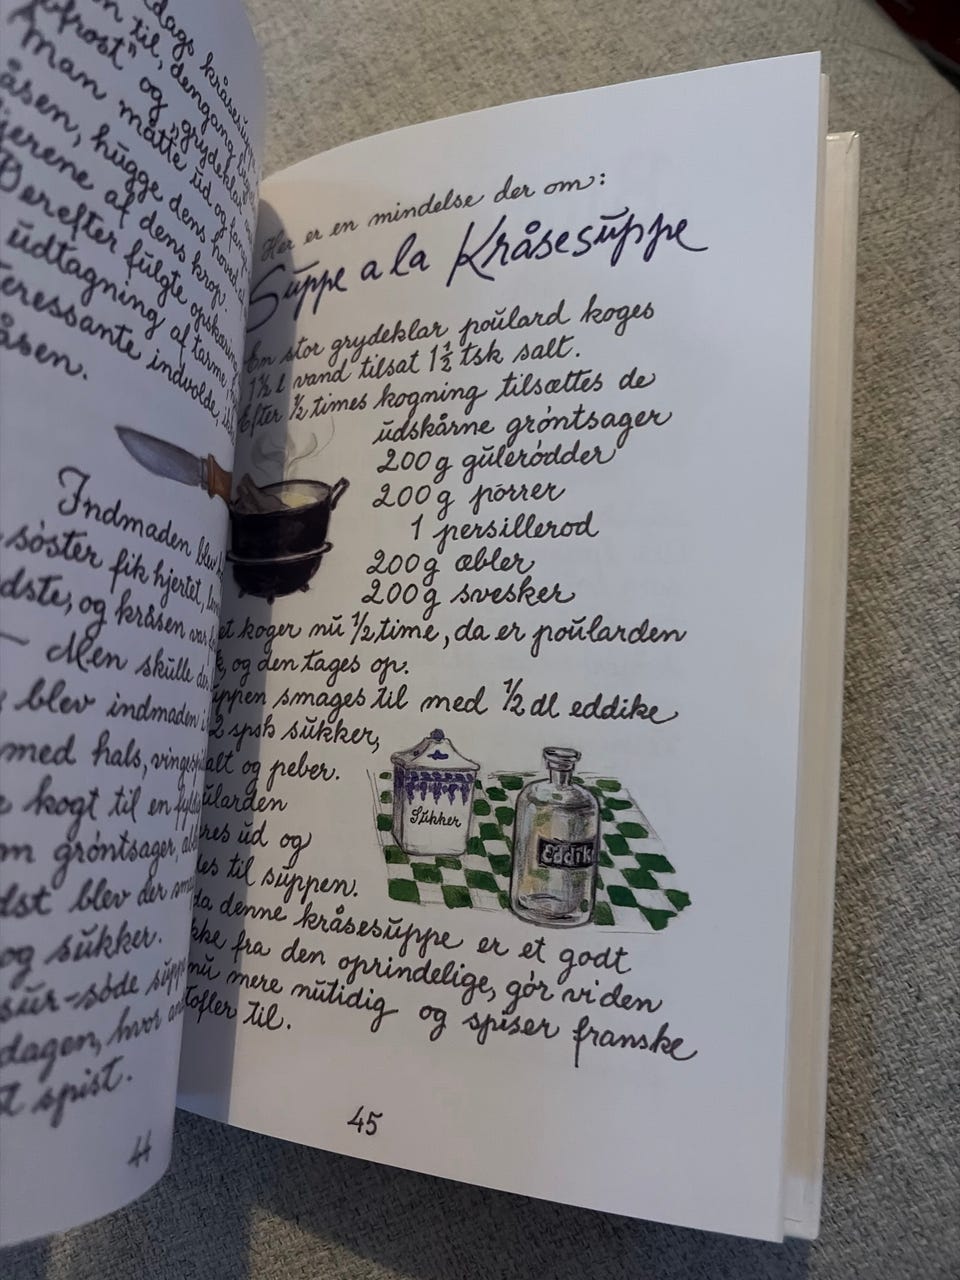 dags kråsesuppe
til, dengang
frost" og "grydeklar
Man måtte ud og fange
åsen, hugge dens hoved af,
jerene af dens krop.
Derefter fulgte opskæring
udtagning af tarme,
teressante indvolde,
åsen.
Indmaden blev
søster fik hjertet,
dste, og kråsen var
— Men skulle
blev indmaden i
med hals, vingespi
kogt til en
m grøntsager,
dst blev der sma
og sukker.
sur-søde suppe
dagen, hvor
t spist.
44
Her er en mindelse der om:
Suppe a la Kråsesuppe
En stor grydeklar poulard koges
1½ l vand tilsat 1½ tsk salt.
Efter ½ times kogning tilsættes de
udskårne grøntsager
200 g gulerødder
200 g porrer
1 persillerod
200 g æbler
200 g svesker
et koger nu ½ time, da er poularden
k, og den tages op.
uppen smages til med ½ dl eddike
2 spsk sukker,
alt og peber.
ularden
res ud og
es til suppen.
da denne kråsesuppe er et godt
kke fra den oprindelige, gør vi den
nu mere nutidig og spiser franske
tofler til.
Sukker
Eddik
45